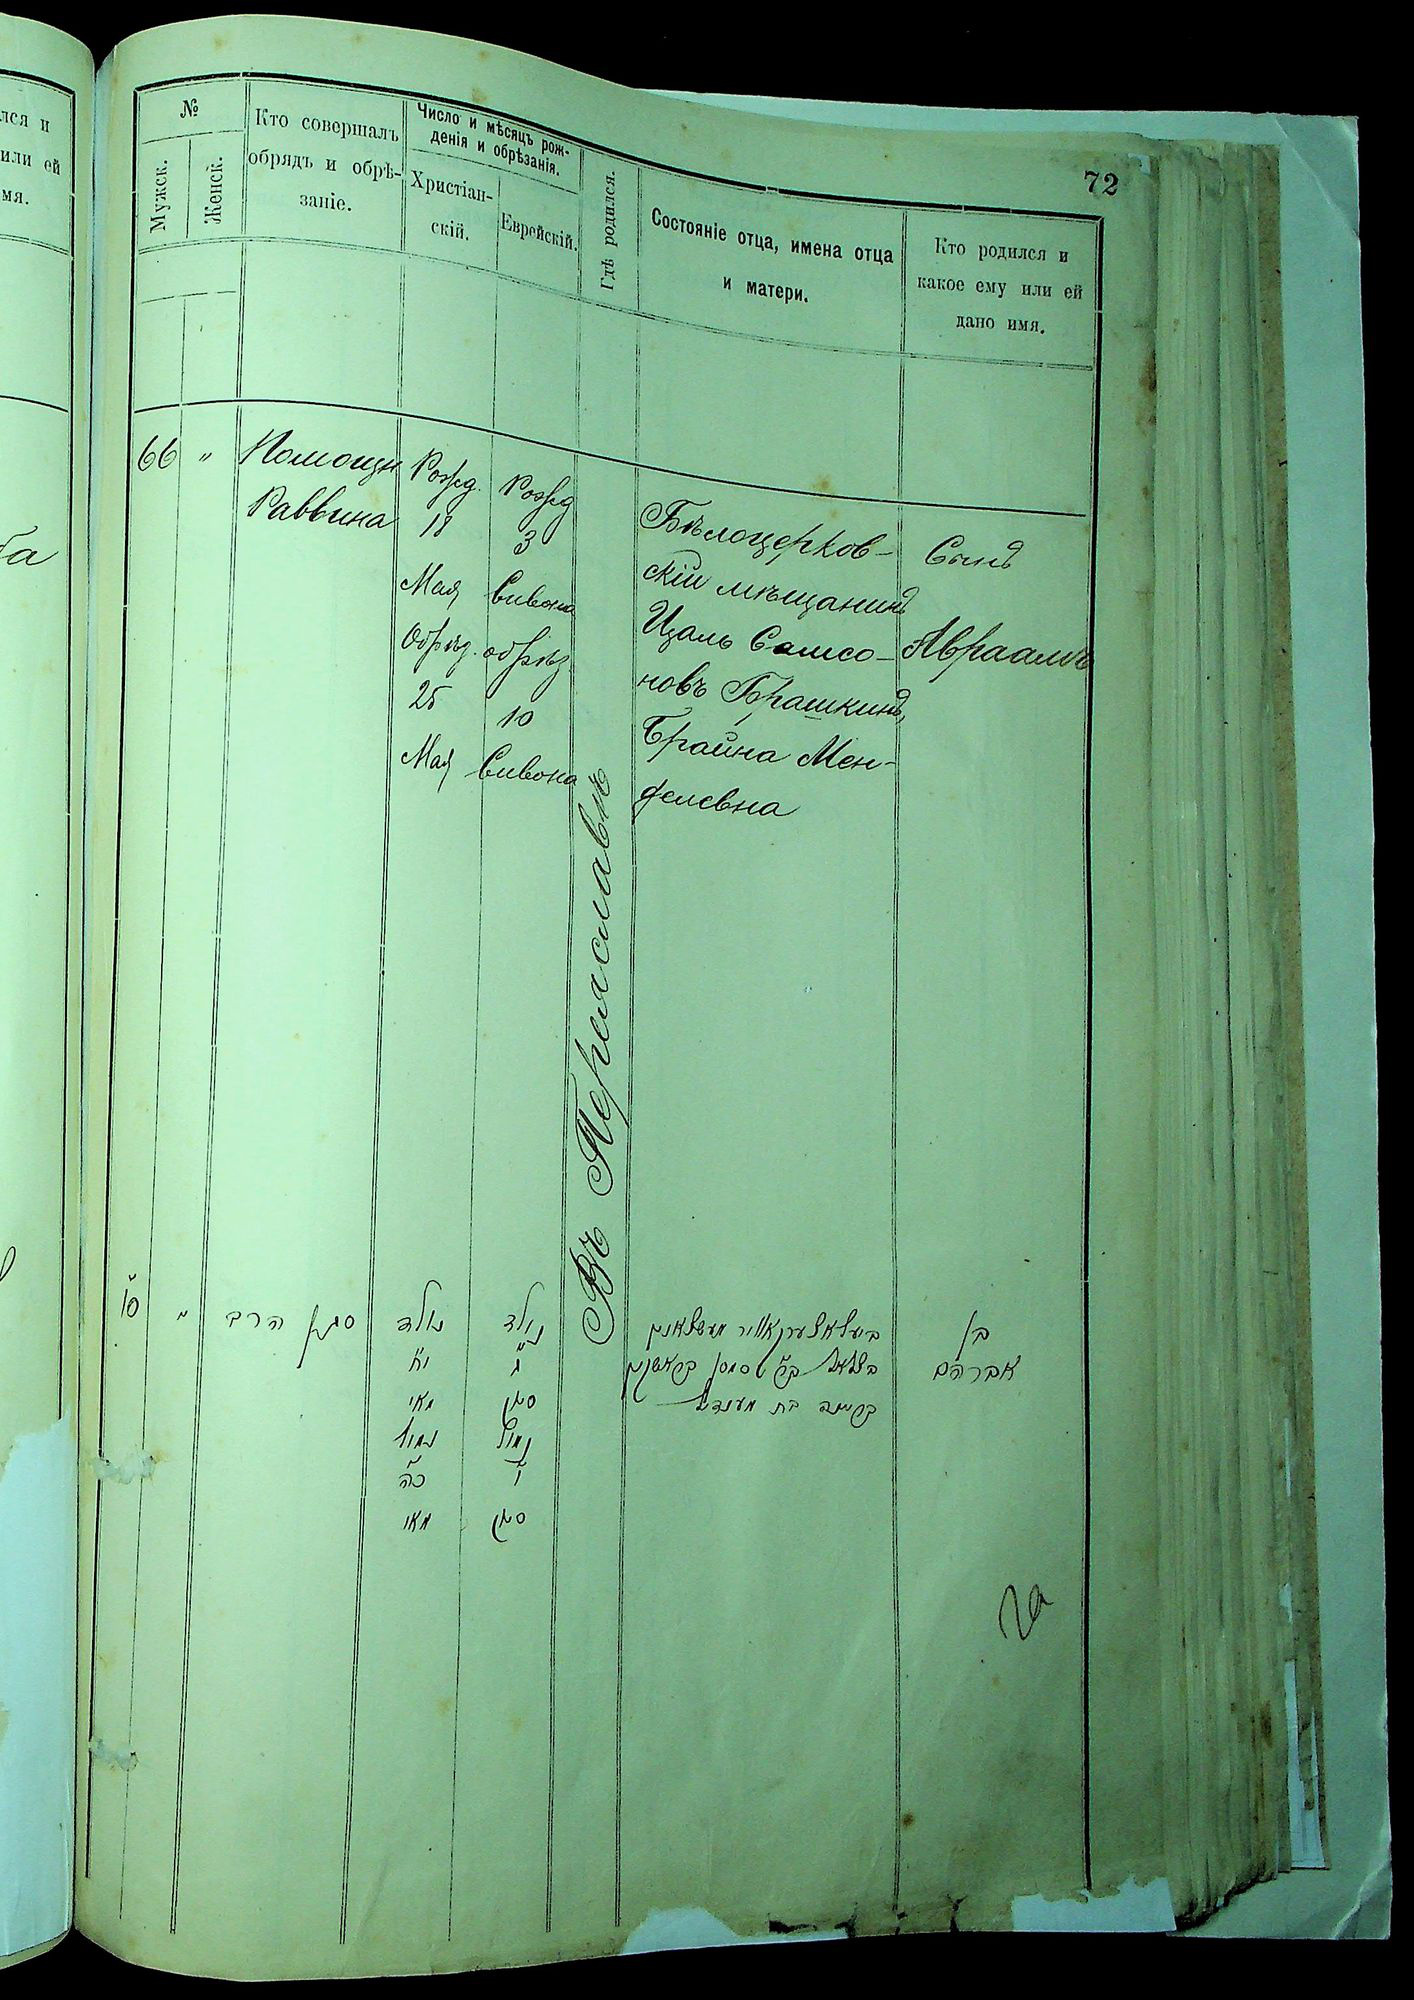 лся и
или ей
мя.
72
№
Мужск.
Женск.
Кто совершалъ
обрядъ и обрѣ-
заніе.
Число и мѣсяцъ рож-
денія и обрѣзанія.
Христіан-
скій.
Еврейскій.
Гдѣ родился.
Состояніе отца, имена отца
и матери.
Кто родился и
какое ему или ей
дано имя.
66
"
Помощн
Раввина
Рожд.
18
Мая
Обрѣз.
25
Мая
Рожд
3
Сивона
обрѣз
10
Сивона
Въ Переяславлѣ
Бѣлоцерков-
скій мѣщанинъ
Цаль Самсо-
новъ Брашкинъ,
Брайна Мен-
делевна
Сынъ
Авраамъ
סו
"
סגן הרב
נולד
יח
מאי
נמול
כה
מאי
נולד
ג
סיון
נמול
י
סיון
בצלאל
בת מענדל
בן
אברהם